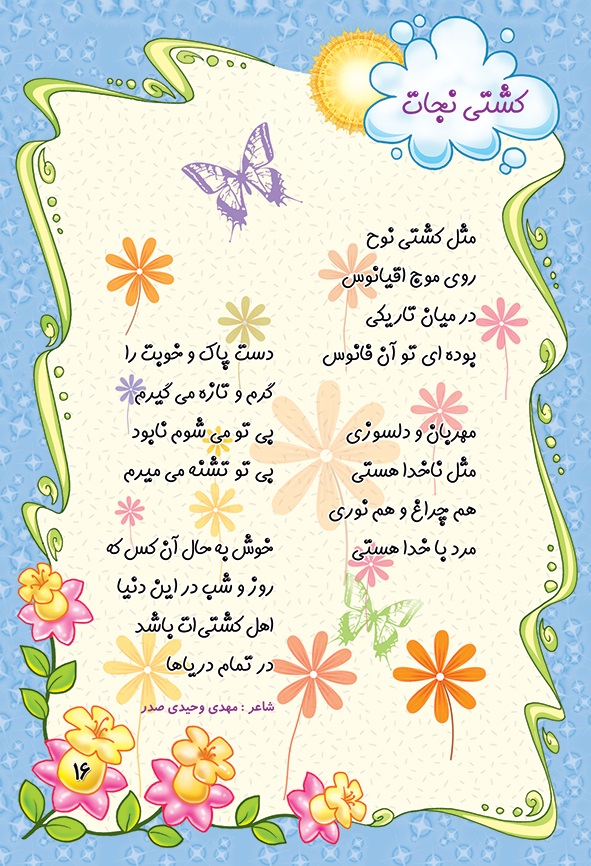 کشتی نجات
مثل کشتی نوح
روی موج اقیانوس
در میان تاریکی
بوده ای تو آن فانوس
مهربان و دلسوزی
مثل ناخدا هستی
هم چراغ و هم نوری
مرد با خدا هستی
دست پاک و خوبت را
گرم و تازه می گیرم
بی تو می شوم نابود
بی تو تشنه می میرم
خوش به حال آن کس که
روز و شب در این دنیا
اهل کشتی‌ات باشد
در تمام دریاها
شاعر : مهدی وحیدی صدر
۱۶